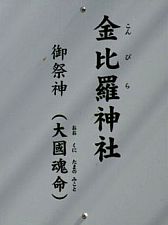 金比羅神社
こんぴら
御祭神
(大國魂命)
おお くに たまの みこと